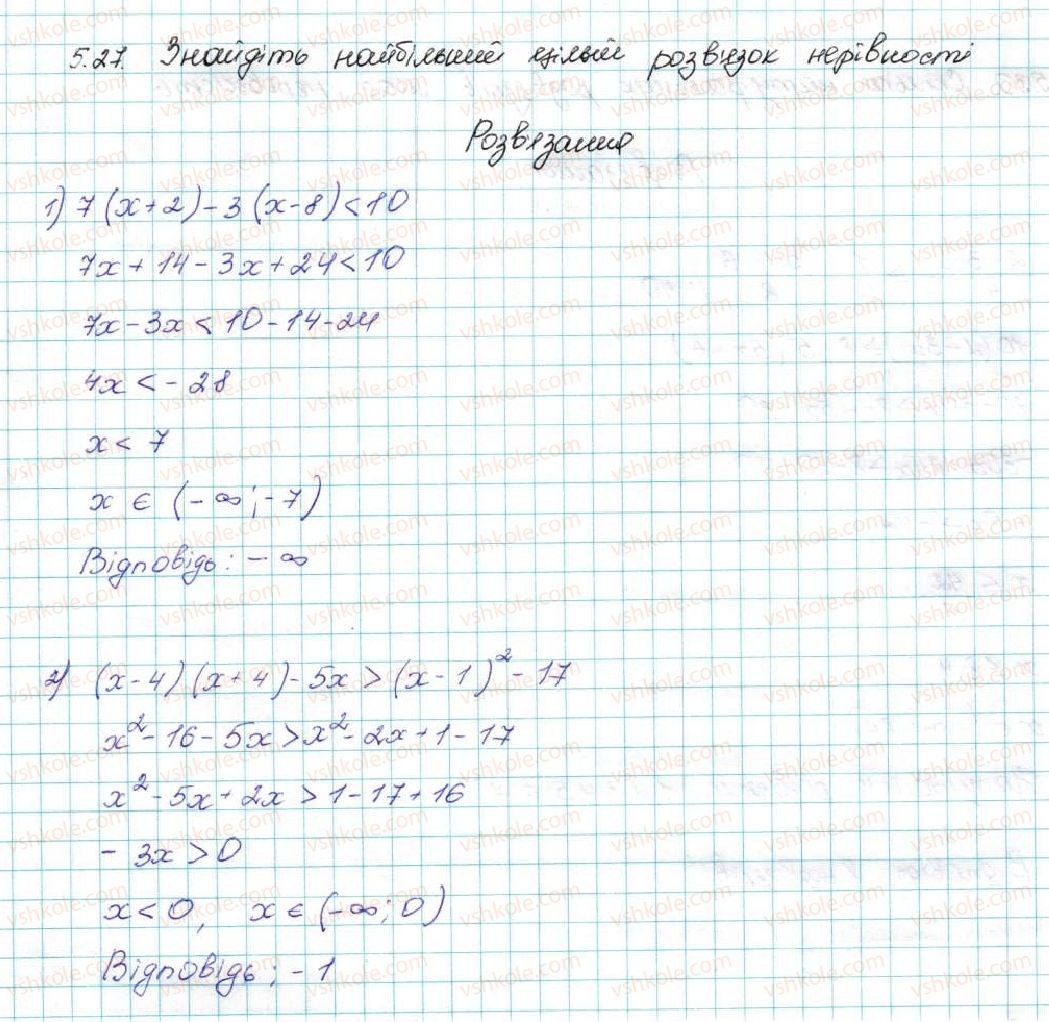 5.27. Знайдіть найбільший цілий розв'язок нерівності
Розв'язання
1) 7(x+2)-3(x-8)<10
7x+14-3x+24<10
7x-3x<10-14-24
4x<-28
x<7
x ∈ (-∞;-7)
Відповідь: -∞
2) (x-4)(x+4)-5x>(x-1)²-17
x²-16-5x>x²-2x+1-17
x²-5x+2x>1-17+16
-3x>0
x<0, x∈(-∞;0)
Відповідь: -1